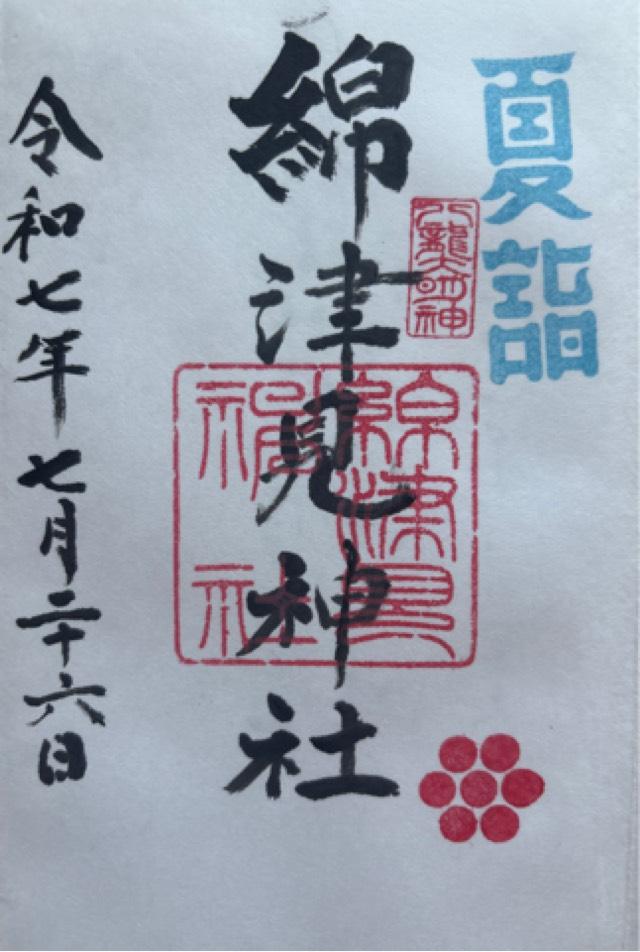 夏詣
八龍大明神
綿津見神社
綿津見神社
令和七年七月二十六日